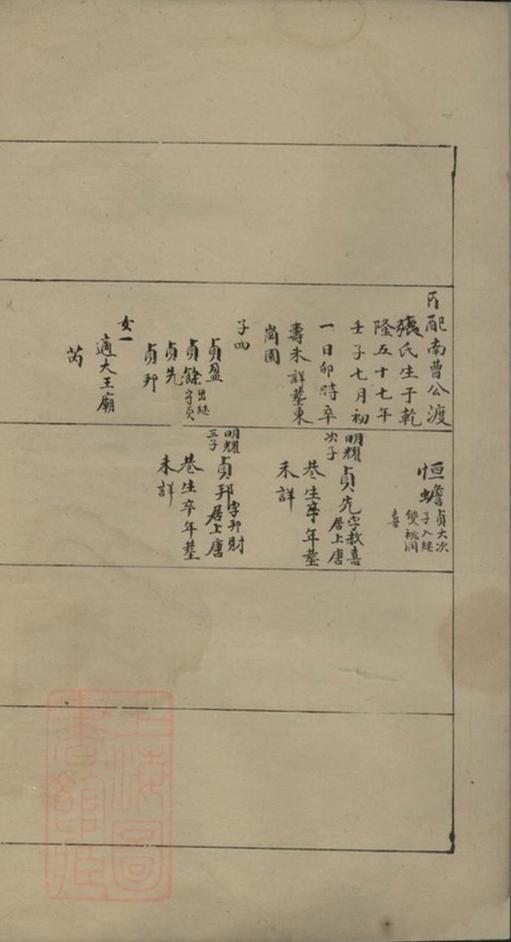 配南曹公渡
張氏生于乾
隆五十七年
壬子七月初
一日卯時卒
壽未詳墓東
崗園
子四
貞盈
貞餘出繼守貞
貞先
貞邦
女一
適大王廟
芮
恒蟾貞大次子入繼雙祧潤喜
明耀次子
貞先字教喜居上唐
巷生卒年墓
未詳
明耀三子
貞邦字邦財居上唐
巷生卒年墓
未詳
上海圖
書館藏